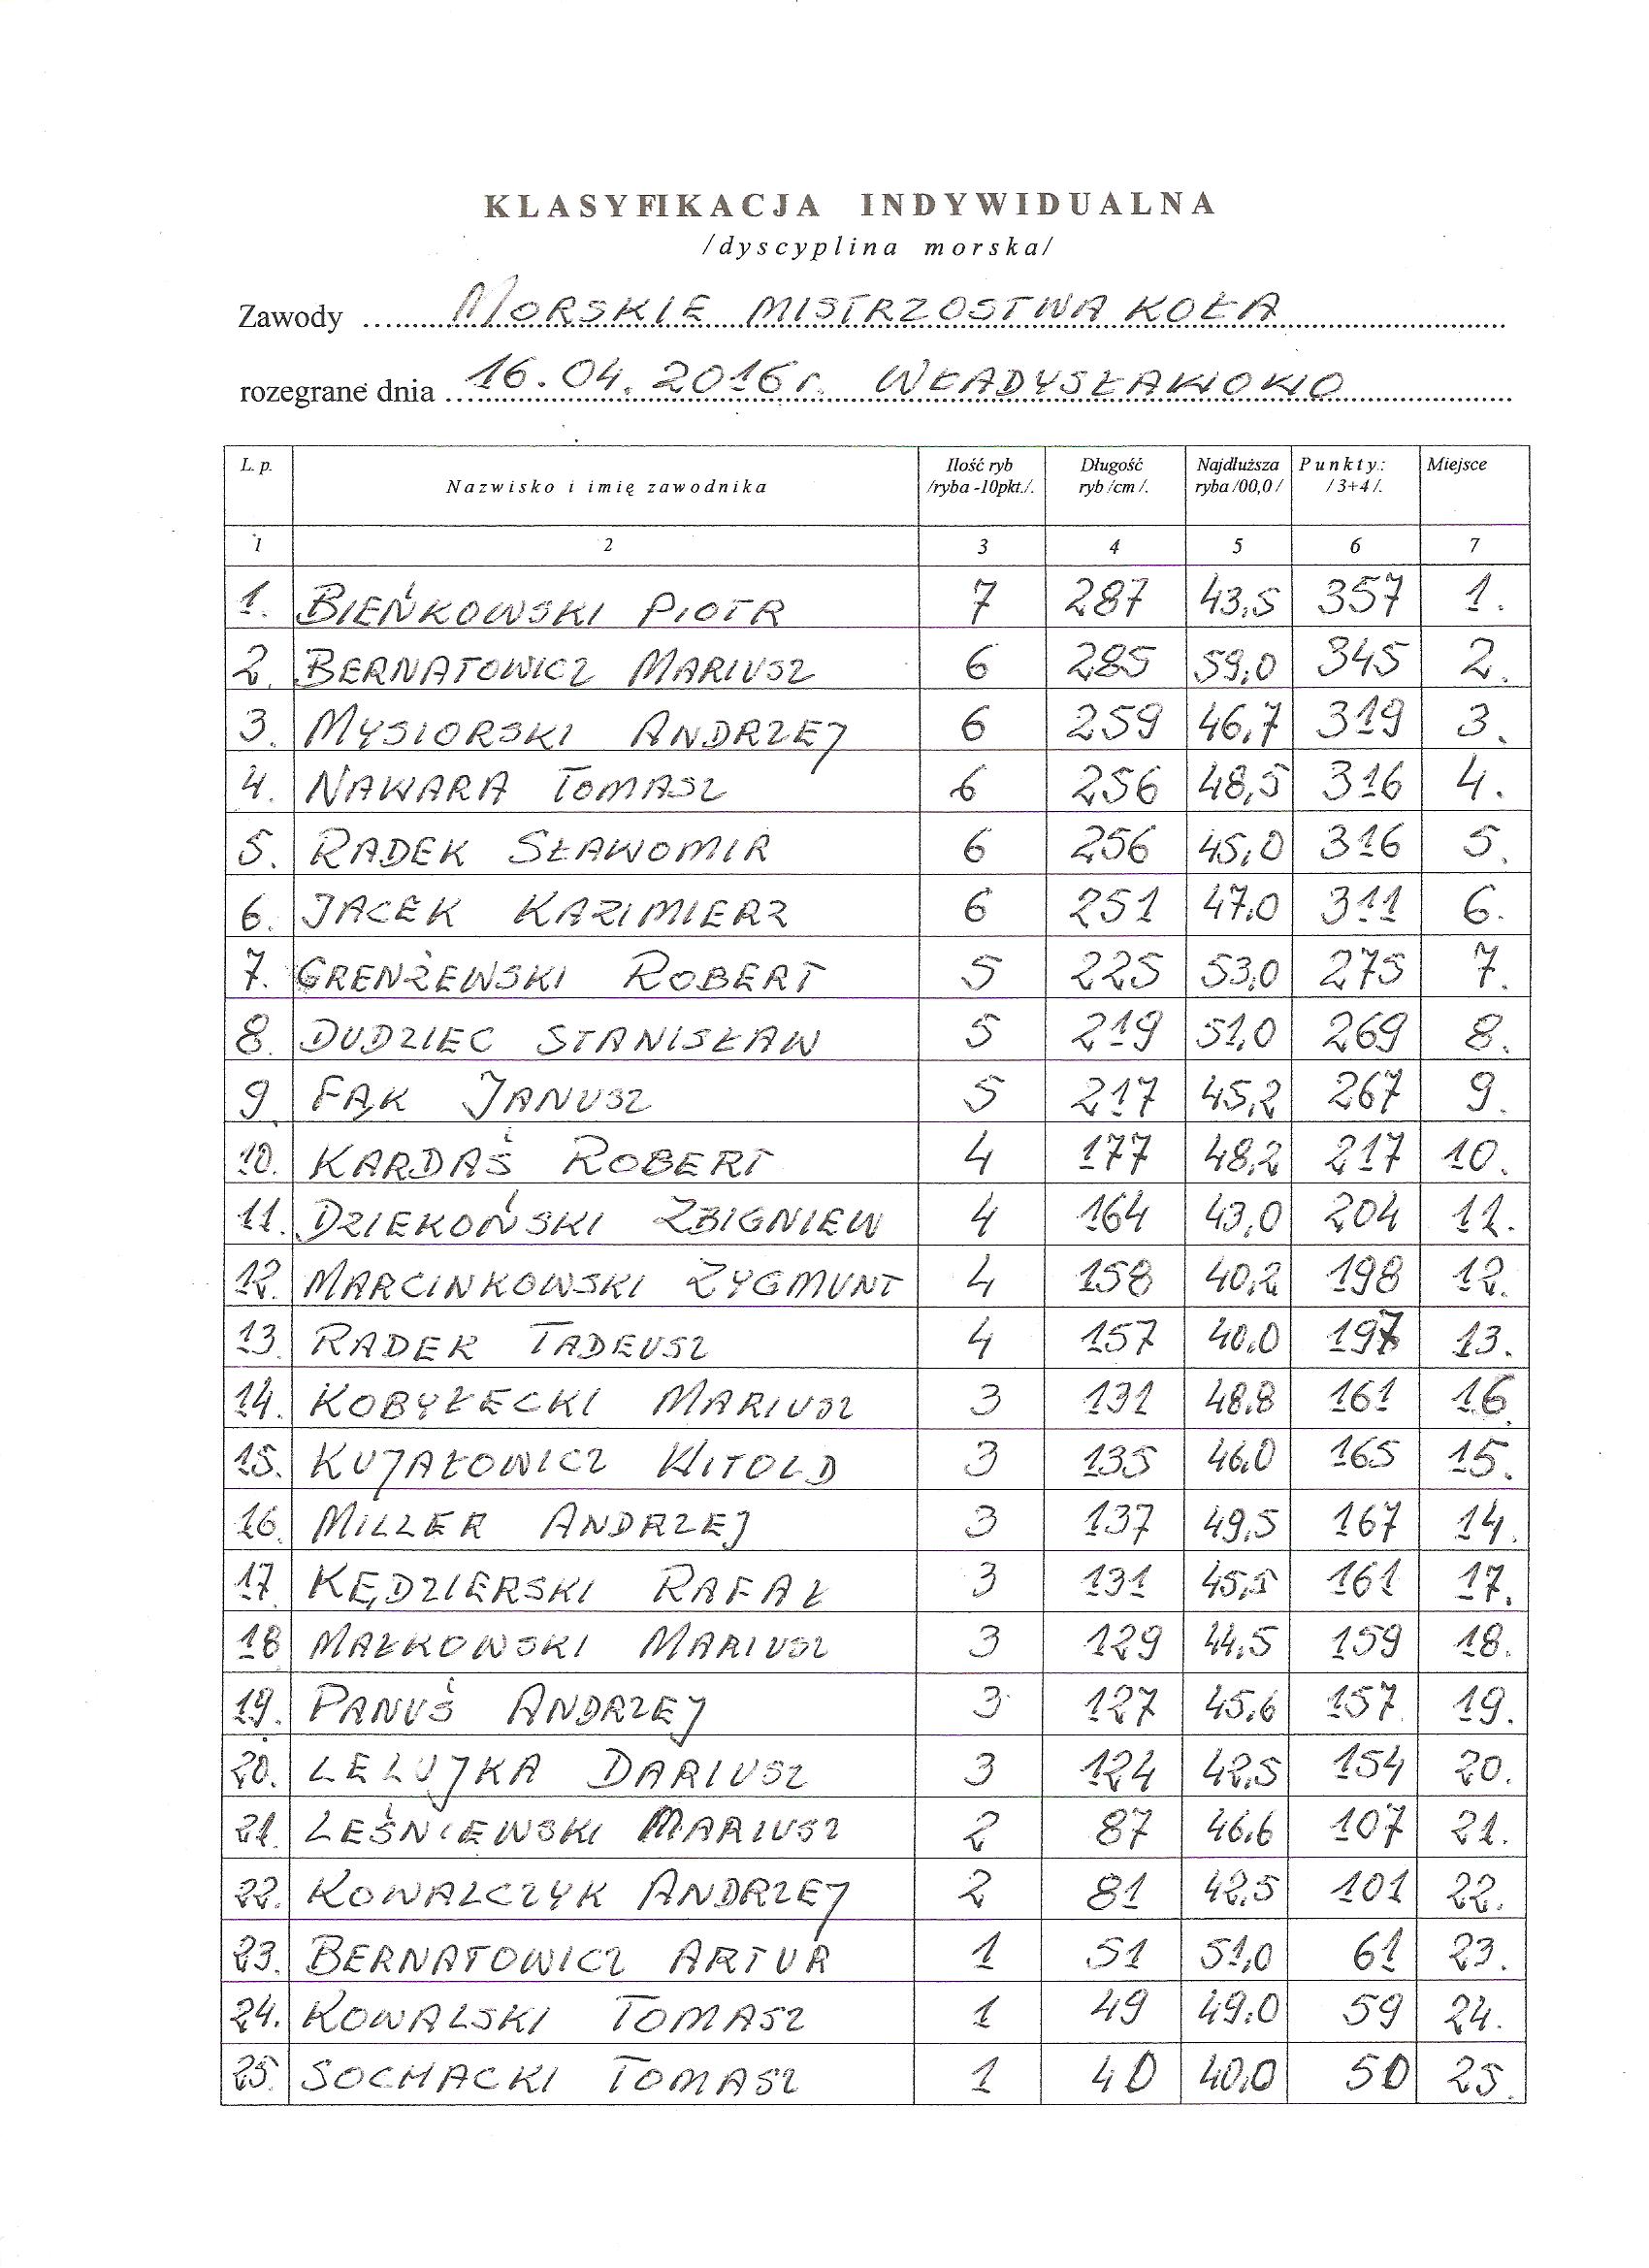 KLASYFIKACJA INDYWIDUALNA
/dyscyplina morska/
Zawody MORSKIE MISTRZOSTWA KOŁA
rozegrane dnia 16.04.2016r. WŁADYSŁAWOWO
L. p. Nazwisko i imię zawodnika Ilość ryb /ryba -10pkt./. Długość ryb /cm /. Najdłuższa ryba /00,0 / Punkty.: / 3+4 /. Miejsce
1 2 3 4 5 6 7
1. BIEŃKOWSKI PIOTR 7 287 43,5 357 1.
2. BERNATOWICZ MARIUSZ 6 285 59,0 345 2.
3. MYSIORSKI ANDRZEJ 6 259 46,7 319 3.
4. NAWARA TOMASZ 6 256 48,5 316 4.
5. RADEK SŁAWOMIR 6 256 45,0 316 5.
6. JACEK KAZIMIERZ 6 251 47,0 311 6.
7. GRENŻEWSKI ROBERT 5 225 53,0 275 7.
8. DUDZIEC STANISŁAW 5 219 51,0 269 8.
9. FĄK JANUSZ 5 217 45,2 267 9.
10. KARDAŚ ROBERT 4 177 48,2 217 10.
11. DZIEKOŃSKI ZBIGNIEW 4 164 43,0 204 11.
12. MARCINKOWSKI ZYGMUNT 4 158 40,2 198 12.
13. RADEK TADEUSZ 4 157 40,0 197 13.
14. KOBYŁECKI MARIUSZ 3 131 48,8 161 16.
15. KUJAŁOWICZ WITOLD 3 135 46,0 165 15.
16. MILLER ANDRZEJ 3 137 49,5 167 14.
17. KĘDZIERSKI RAFAŁ 3 131 45,5 161 17.
18 MAŁKOWSKI MARIUSZ 3 129 44,5 159 18.
19. PANUŚ ANDRZEJ 3 127 45,6 157 19.
20. LELUJKA DARIUSZ 3 124 42,5 154 20.
21. LEŚNIEWSKI MARIUSZ 2 87 46,6 107 21.
22. KOWALCZYK ANDRZEJ 2 81 42,5 101 22.
23. BERNATOWICZ ARTUR 1 51 51,0 61 23.
24. KOWALSKI TOMASZ 1 49 49,0 59 24.
25. SOCHACKI TOMASZ 1 40 40,0 50 25.